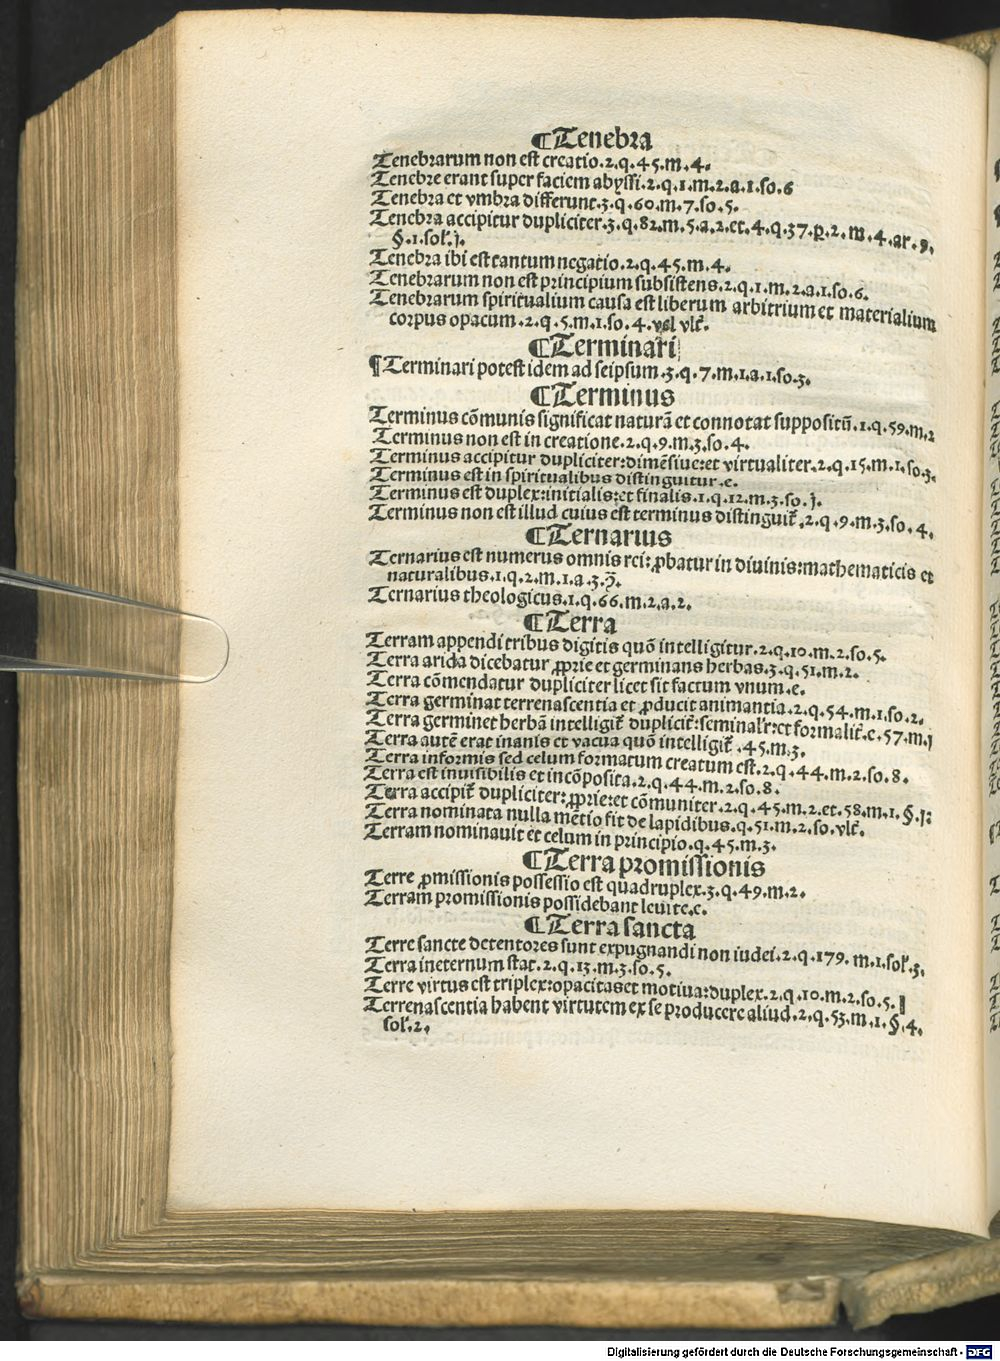 ¶Tenebra
Tenebrarum non est creatio.2.q.45.m.4.
Tenebre erant super faciem abyssi.2.q.1.m.2.a.1.so.6
Tenebra et vmbra differunt.3.q.60.m.7.so.5.
Tenebra accipitur dupliciter.3.q.82.m.5.a.2.et.4.q.37.p̱.2.m.4.ar.9.
§.1.sol'.j.
Tenebra ibi est tantum negatio.2.q.45.m.4.
Tenebrarum non est principium subsistens.2.q.1.m.2.a.1.so.6.
Tenebrarum spiritualium causa est liberum arbitrium et materialium
corpus opacum.2.q.5.m.1.so.4.vel vlt̃.
¶Terminari
¶Terminari potest idem ad seipsum.3.q.7.m.1.a.1.so.3.
¶Terminus
Terminus cõmunis significat naturã et connotat suppositũ.1.q.59.m.2
Terminus non est in creatione.2.q.9.m.3.so.4.
Terminus accipitur dupliciter:dimẽsiue:et virtualiter.2.q.15.m.1.so.3.
Terminus est in spiritualibus distinguitur.e.
Terminus est duplex:initialis:et finalis.1.q.12.m.3.so.j.
Terminus non est illud cuius est terminus distinguit̃.2.q.9.m.3.so.4.
¶Ternarius
Ternarius est numerus omnis rei:ꝓbatur in diuinis:mathematicis et
naturalibus.1.q.2.m.1.a.3.
Ternarius theologicus.1.q.66.m.2.a.2.
¶Terra
Terram appendi tribus digitis quõ intelligitur.2.q.10.m.2.so.5.
Terra arida dicebatur ꝓprie et germinans herbas.3.q.51.m.2.
Terra cõmendatur dupliciter licet sit factum vnum.e.
Terra germinat terrenascentia et ꝓducit animantia.2.q.54.m.1.so.2.
Terra germinet herbã intelligit̃ duplicit̃:seminalr̃:et formalit̃.e.57.m.j
Terra autẽ erat inanis et vacua quõ intelligit̃.45.m.3.
Terra informis sed celum formatum creatum est.2.q.44.m.2.so.8.
Terra est inuisibilis et incõposita.2.q.44.m.2.so.8.
Terra accipit̃ dupliciter:ꝓprie:et cõmuniter.2.q.45.m.2.et.58.m.1.§.j:
Terra nominata nulla mẽtio fit de lapidibus.q.51.m.2.so.vlt̃.
Terram nominauit et celum in principio.q.45.m.3.
¶Terra promissionis
Terre ꝓmissionis possessio est quadruplex.3.q.49.m.2.
Terram promissionis possidebant leuite.e.
¶Terra sancta
Terre sancte detentores sunt expugnandi non iudei.2.q.179.m.1.sol'.3.
Terra ineternum stat.2.q.13.m.3.so.5.
Terre virtus est triplex:opacitas et motiua:duplex.2.q.10.m.2.so.5.
Terrenascentia habent virtutem ex se producere aliud.2.q.53.m.1.§.4.
sol'.2.
Digitalisierung gefördert durch die Deutsche Forschungsgemeinschaft - DFG